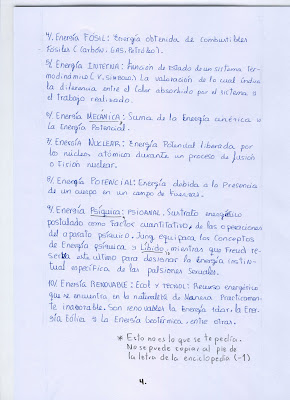 4/. Energía FOSIL: Energía obtenida de combustibles
fosiles (Carbón. GAS. Petróleo).
5/. Energía INTERNA: Función de estado de un sistema ter-
modinámico (V. SIMBOLO). La valoración de la cual indica
la diferencia entre el calor absorbido por el sistema y
el trabajo realizado.
6/. Energía MECÁNICA: Suma de la Energía cinética y
la Energía Potencial.
7/. Energía NUCLEAR: Energía Potencial liberada por
los núcleos atómicos durante un proceso de fusión
o fición nuclear.
8/. Energía POTENCIAL: Energía debida a la Presencia
de un cuerpo en un campo de fuerzas.
9/. Energía Psíquica: PSICOANAL. Sustrato energético
postulado como factor cuantitativo, de las operaciones
del aparato psíquico. Jung equipara los conceptos
de Energía psíquica y Líbido, mientras que Freud re-
serva este último para designar la energía instin-
tual específica de las pulsiones sexuales.
10/. Energía RENOVABLE: Ecol y TECNOL: Recurso energético
que se encuentra en la naturaleza de Manera Practicamen-
te inagotable. Son renovables la Energía solar, la Ener-
gía Eólica y la Energía Geotérmica, entre otras.
* Esto no es lo que se te pedía.
No se puede copiar al pie de
la letra de la enciclopedia (-1)
4.